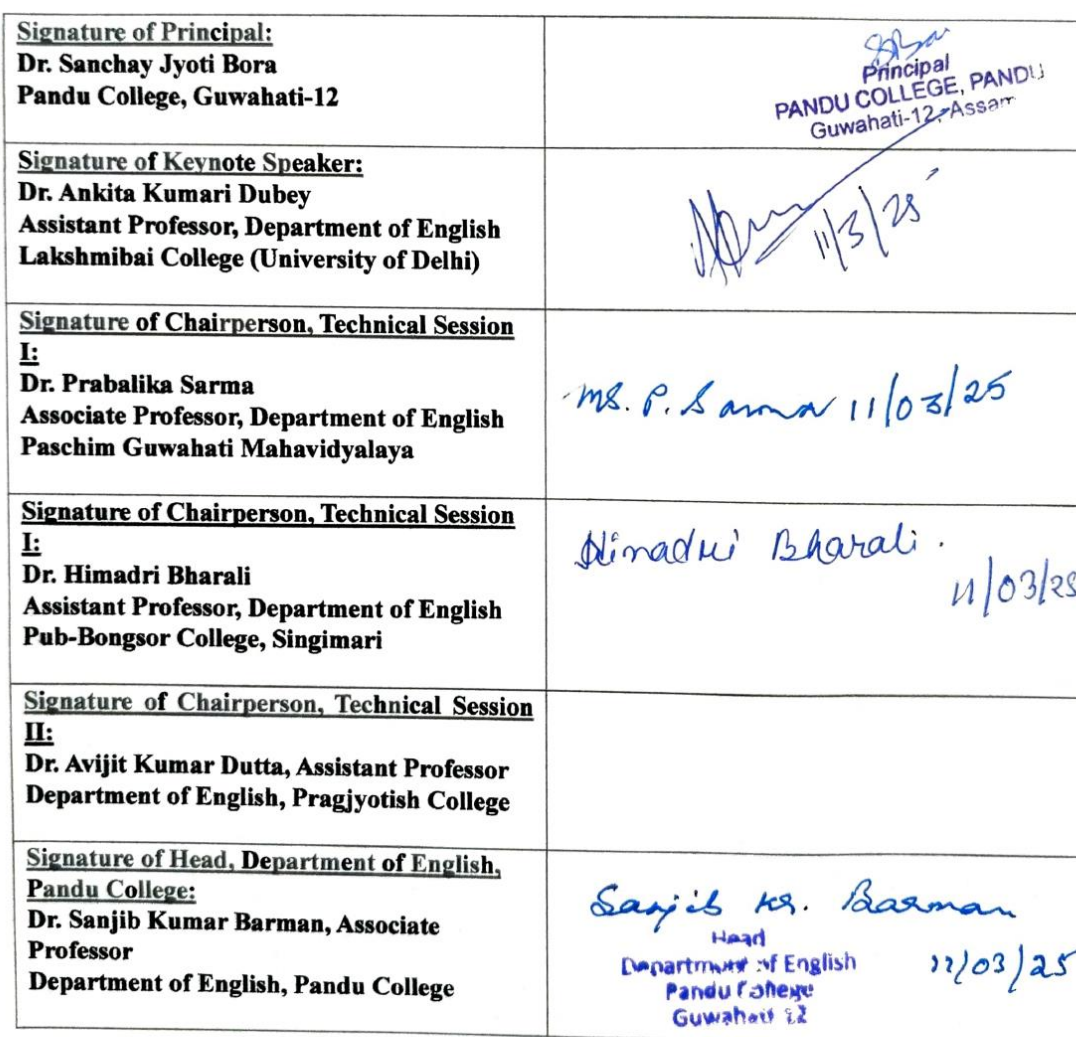 Signature of Principal:
Dr. Sanchay Jyoti Bora
Pandu College, Guwahati-12
Principal
PANDU COLLEGE, PANDU
Guwahati-12, Assam
Signature of Keynote Speaker:
Dr. Ankita Kumari Dubey
Assistant Professor, Department of English
Lakshmibai College (University of Delhi)
11/3/25
Signature of Chairperson, Technical Session
I:
Dr. Prabalika Sarma
Associate Professor, Department of English
Paschim Guwahati Mahavidyalaya
Ms. P. Sarma 11/03/25
Signature of Chairperson, Technical Session
I:
Dr. Himadri Bharali
Assistant Professor, Department of English
Pub-Bongsor College, Singimari
Himadri Bharali.
11/03/25
Signature of Chairperson, Technical Session
II:
Dr. Avijit Kumar Dutta, Assistant Professor
Department of English, Pragjyotish College
Signature of Head, Department of English,
Pandu College:
Dr. Sanjib Kumar Barman, Associate
Professor
Department of English, Pandu College
Sanjib Kr. Barman
11/03/25
Head
Department of English
Pandu College
Guwahati 12